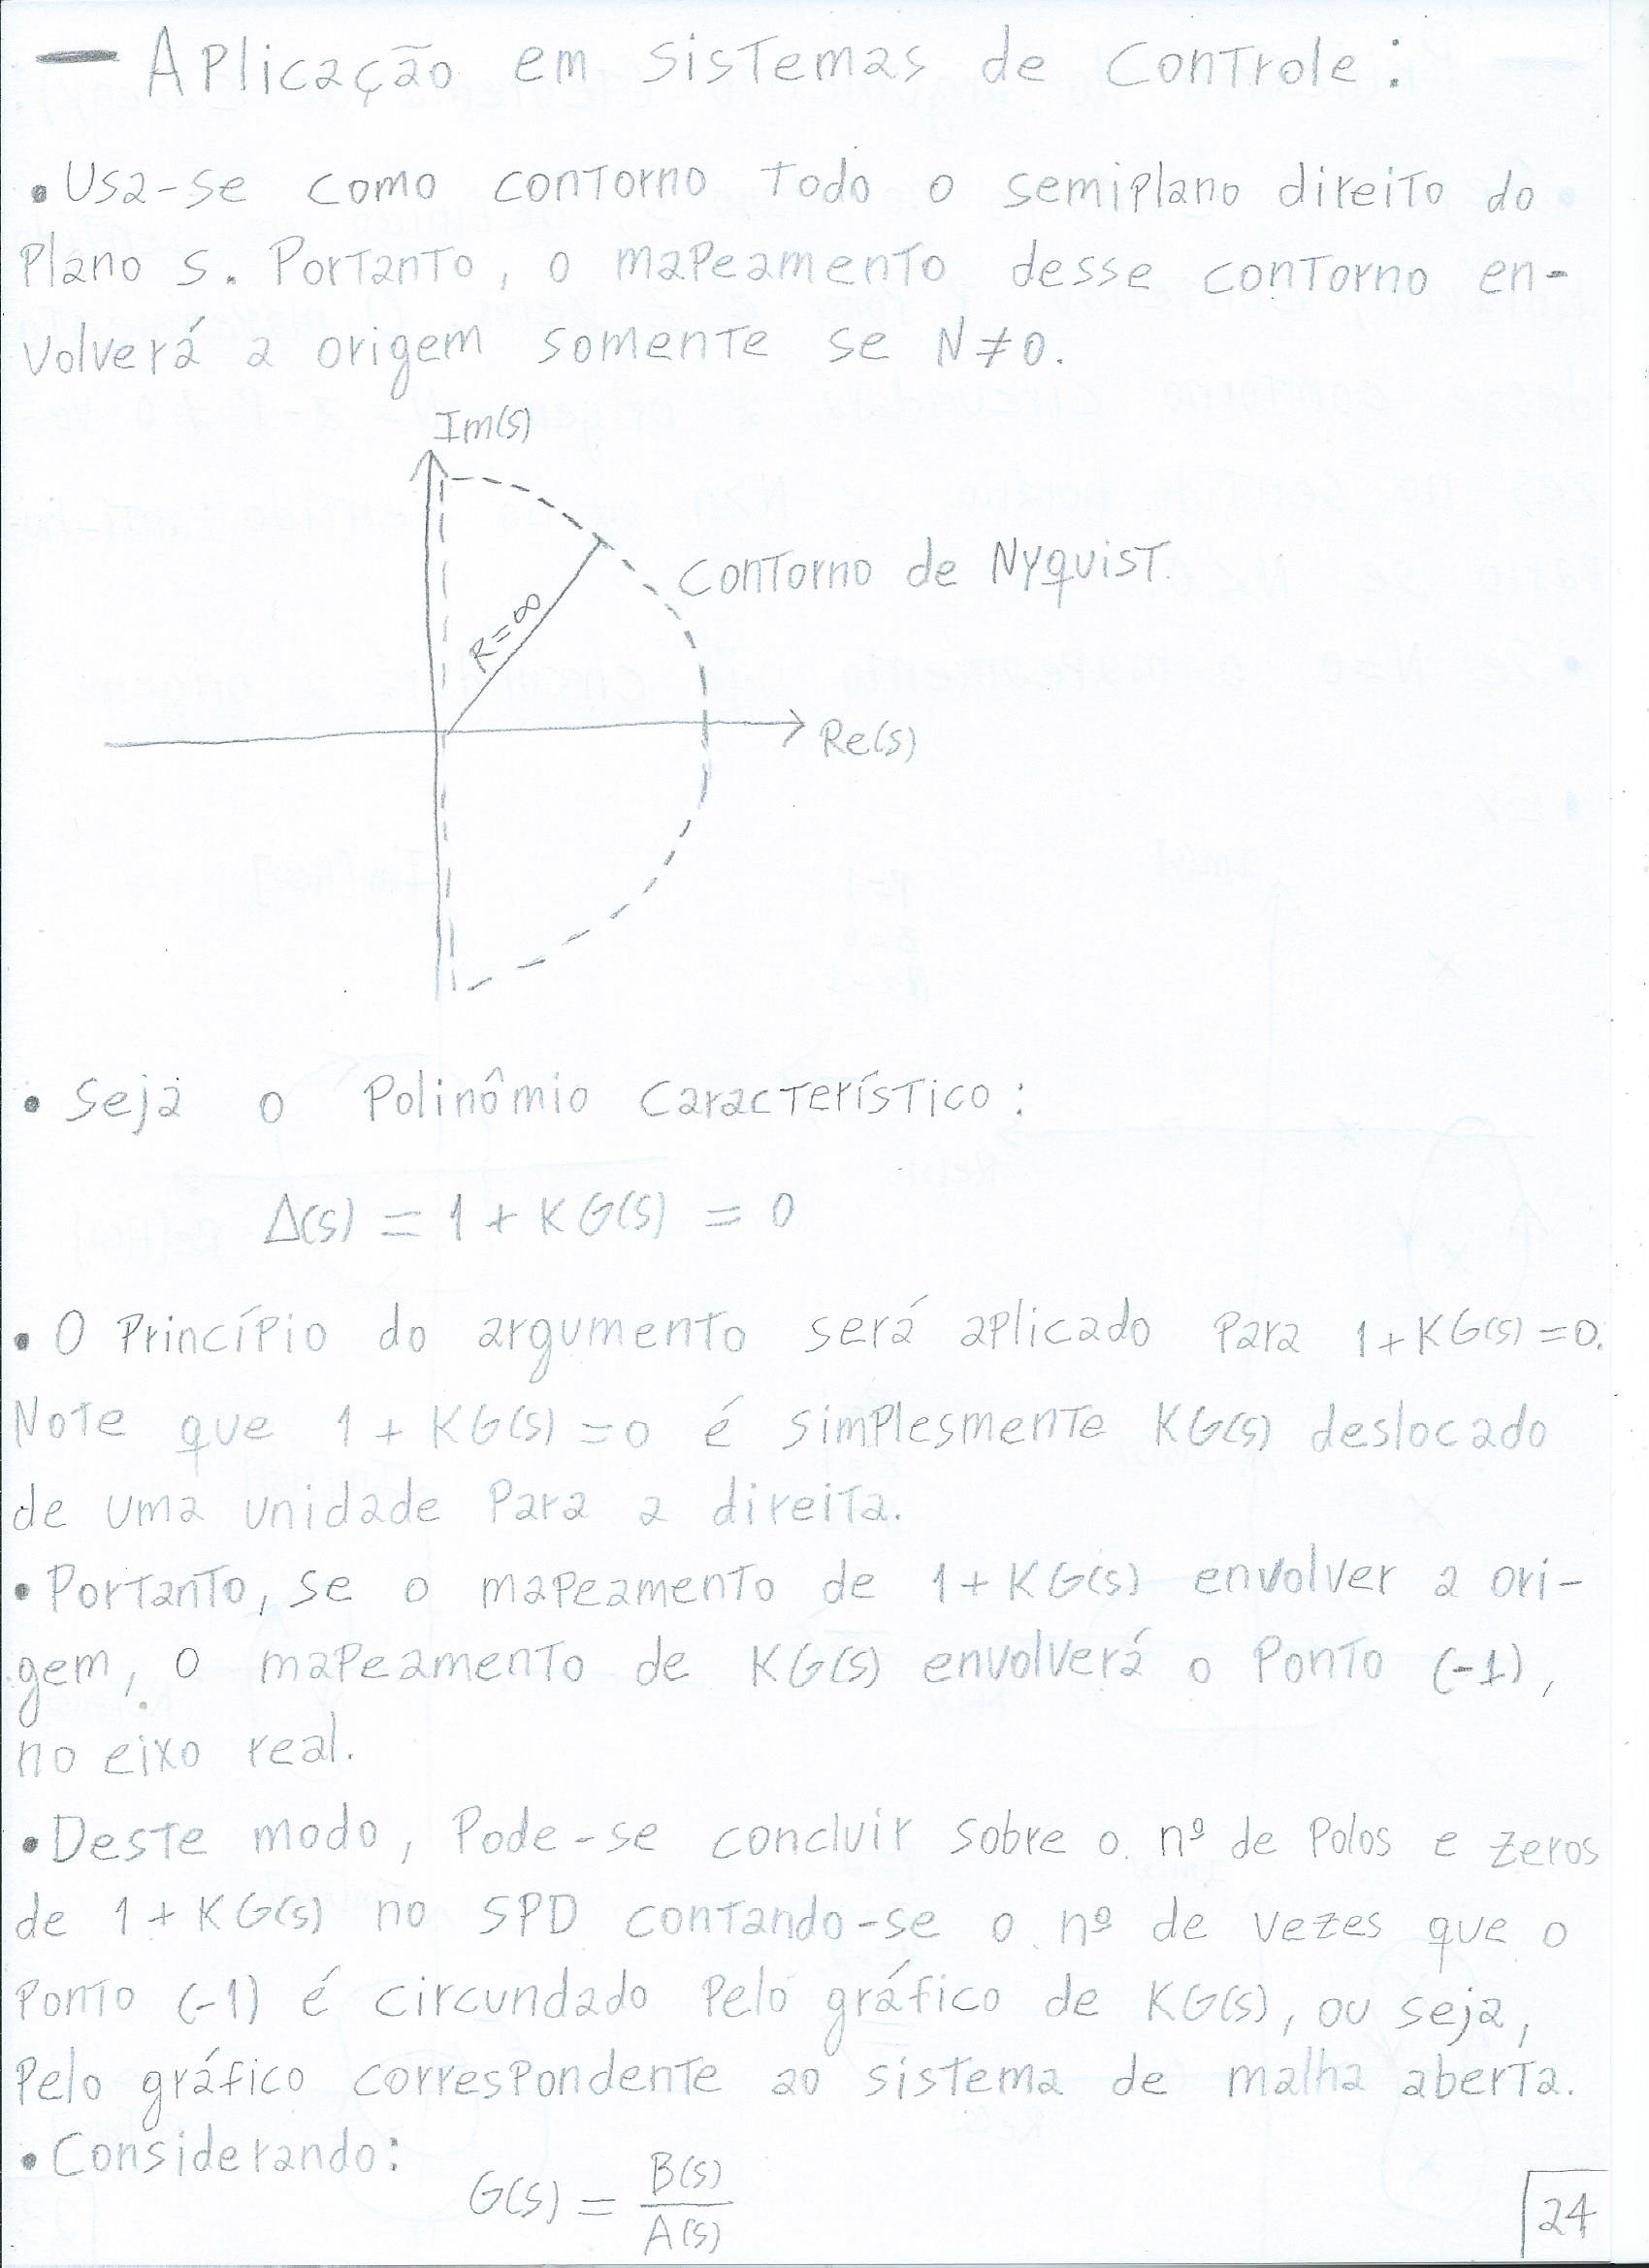 — Aplicação em sistemas de controle:
• Usa-se como contorno todo o semiplano direito do
plano s. Portanto, o mapeamento desse contorno en-
volverá a origem somente se N≠0.
Im(s)
Contorno de Nyquist.
R=∞
Re(s)
• Seja o polinômio característico:
Δ(s) = 1 + KG(s) = 0
• O princípio do argumento será aplicado para 1+KG(s)=0.
Note que 1 + KG(s)=0 é simplesmente KG(s) deslocado
de uma unidade para a direita.
• Portanto, se o mapeamento de 1+KG(s) envolver a ori-
gem, o mapeamento de KG(s) envolverá o ponto (-1),
no eixo real.
• Deste modo, pode-se concluir sobre o nº de polos e zeros
de 1+KG(s) no SPD contando-se o nº de vezes que o
ponto (-1) é circundado pelo gráfico de KG(s), ou seja,
pelo gráfico correspondente ao sistema de malha aberta.
• Considerando:
G(s) = B(s)/A(s)
24